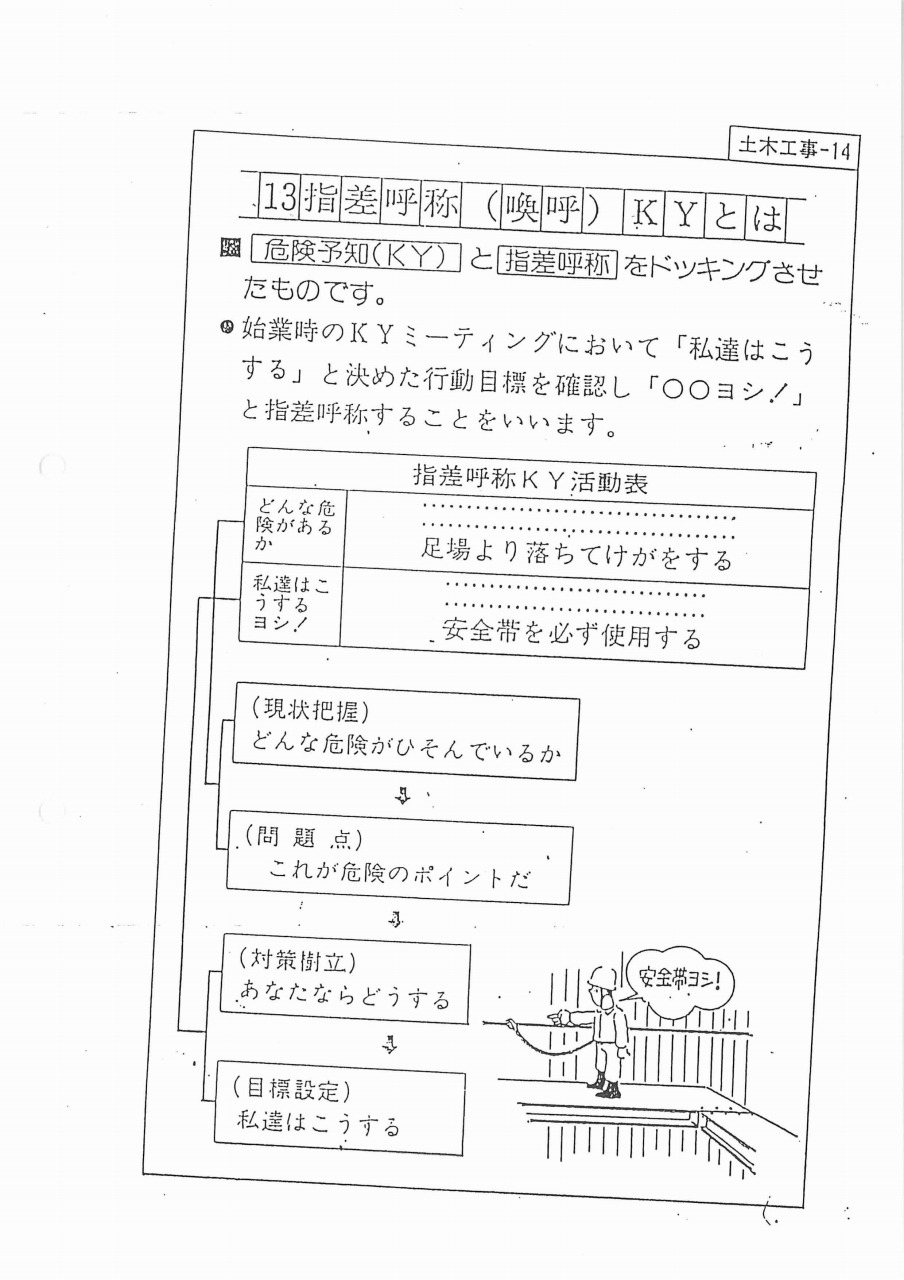 土木工事-14
13指差呼称(喚呼)KYとは
危険予知(KY)と指差呼称をドッキングさせ
たものです。
始業時のKYミーティングにおいて「私達はこう
する」と決めた行動目標を確認し「○○ヨシ！」
と指差呼称することをいいます。
指差呼称KY活動表
どんな危
険がある
か
足場より落ちてけがをする
私達はこ
うする
ヨシ！
安全帯を必ず使用する
(現状把握)
どんな危険がひそんでいるか
(問題点)
これが危険のポイントだ
(対策樹立)
あなたならどうする
安全帯ヨシ！
(目標設定)
私達はこうする